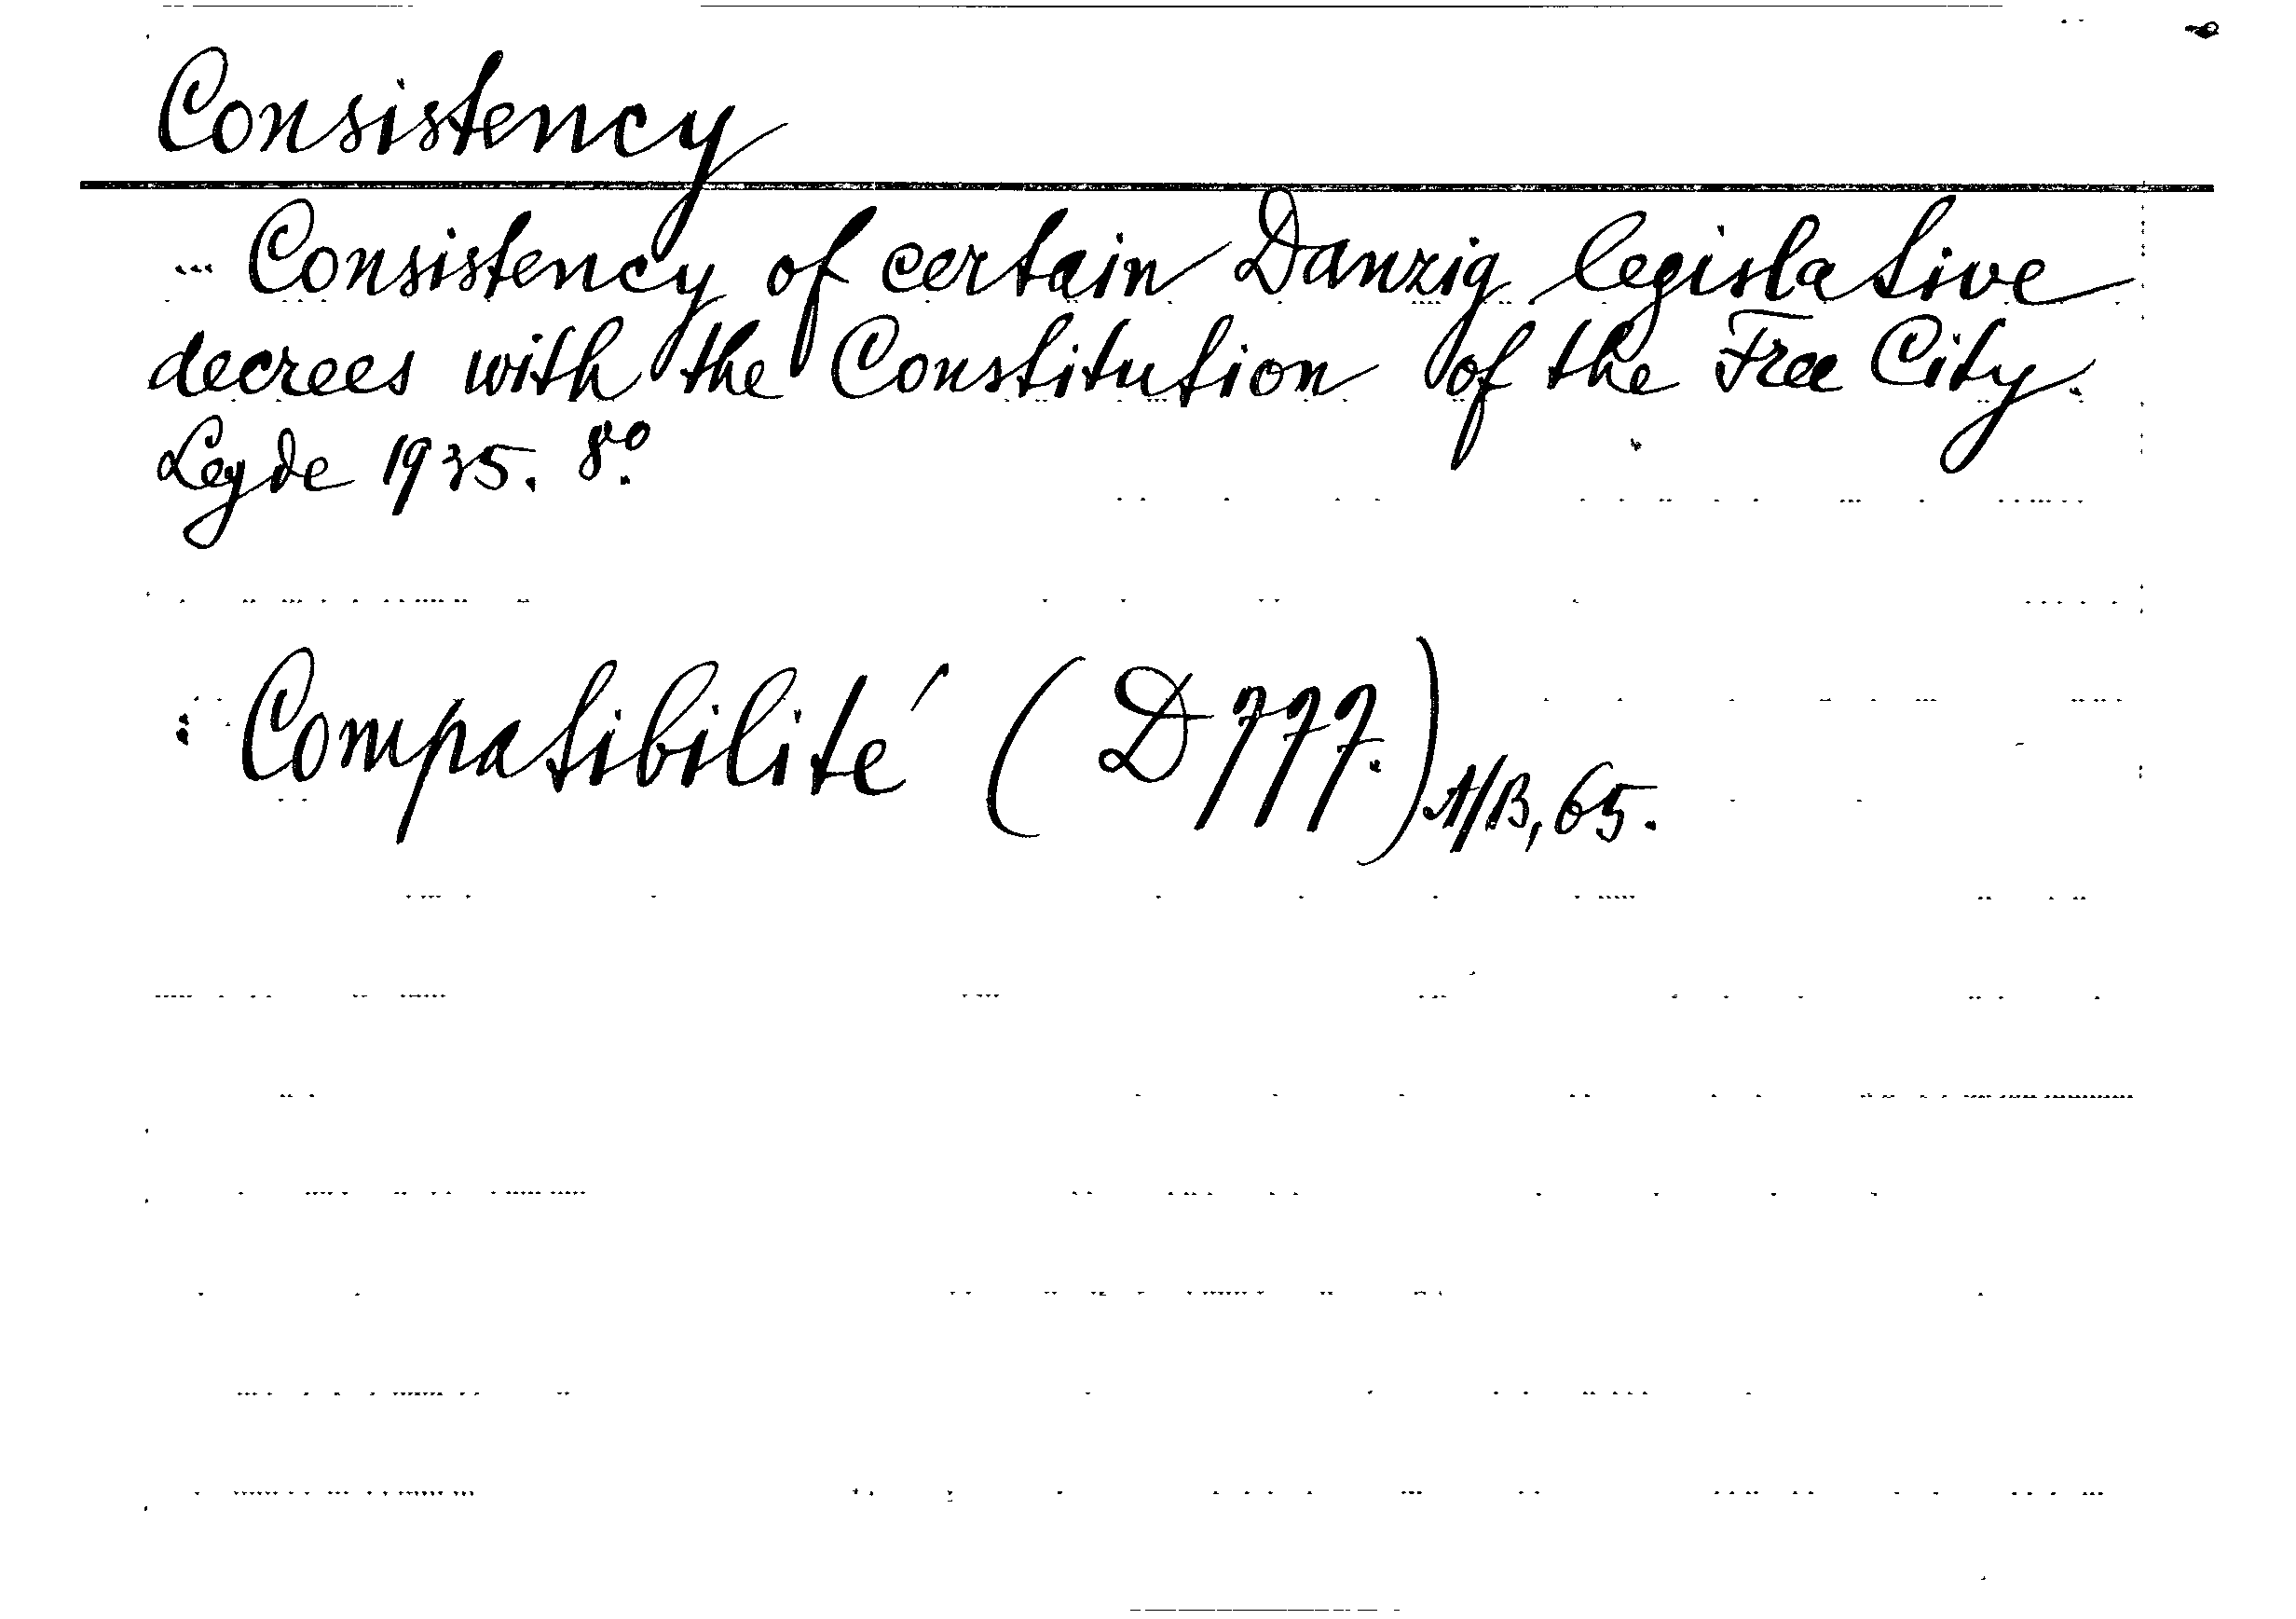 Consistency
Consistency of certain Danzig legislative
decrees with the Constitution of the Free City.
Leyde 1935. 8º.
Compatibilité (D 777.) A/B, 65.